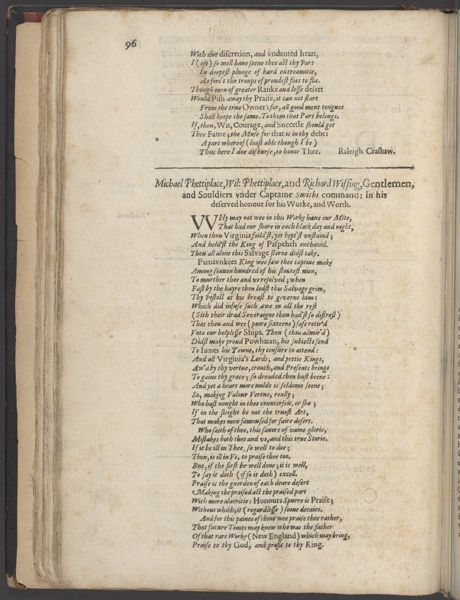 96
With due discretion, and undanted heart,
I (oft) so well haue seene thee act thy Part
In deepest plunge of hard extreamitie,
As forc't the troups of proudest foes to flie.
Though men of greater Ranke and lesse desert
Would Pish-away thy Praise, it can not start
From the true Owner: for, all good mens tongues
Shall keepe the same. To them that Part belongs.
If, then, Wit, Courage, and Successe should get
Thee Fame; the Muse for that is in thy debt:
A part whereof (least able though I be)
Thus here I doe disburse, to honor Thee. Raleigh Crashaw.
Michael Phettiplace, Wil: Phettiplace, and Richard Wiffing, Gentlemen,
and Souldiers vnder Captaine Smiths command: In his
deserved honour for his Worke, and Worth.
WHy may not wee in this Worke haue our Mite,
That had our share in each black day and night,
When thou Virginia foild'st, yet kept'st vnstaind;
And held'st the King of Paspeheh enchaind.
Thou all alone this Salvage sterne didst take.
Pamavnkees King wee saw thee captiue make
Among seauen hundred of his stoutest men,
To murther thee and vs resolved; when
Fast by the hayre thou ledst this Salvage grim,
Thy Pistoll at his breast to governe him:
Which did infuse such awe in all the rest
(Sith their drad Soveraigne thou had'st so distrest)
That thou and wee (poore sixteene) safe retir'd
Vnto our helplesse Ships. Thou (thus admir'd)
Didst make proud Powhatan, his subiects send
To Iames his Towne, thy censure to attend:
And all Virginia's Lords, and pettie Kings,
Aw'd by thy vertue, crouch, and Presents brings
To gaine thy grace; so dreaded thou hast beene:
And yet a heart more milde is seldome seene;
So, making Valour Vertue, really;
Who hast nought in thee counterfeit, or slie;
If in the sleight be not the truest Art,
That makes men famoused for faire desert.
Who saith of thee, this sauors of vaine glorie,
Mistakes both thee and vs, and this true Storie.
If it be ill in Thee, so well to doe;
Then, is it ill in Vs, to praise thee too.
But, if the first be well done; it is well,
To say it doth (if so it doth) excell.
Praise is the guerdon of each deare desert
Making the praised act the praised part
With more alacritie: Honours Spurre is Praise;
Without which, it (regardlesse) soone decaies.
And for this paines of thine wee praise thee rather,
That future Times may know who was the father
Of that rare Worke (New England) which may bring,
Praise to thy God, and profit to thy King.